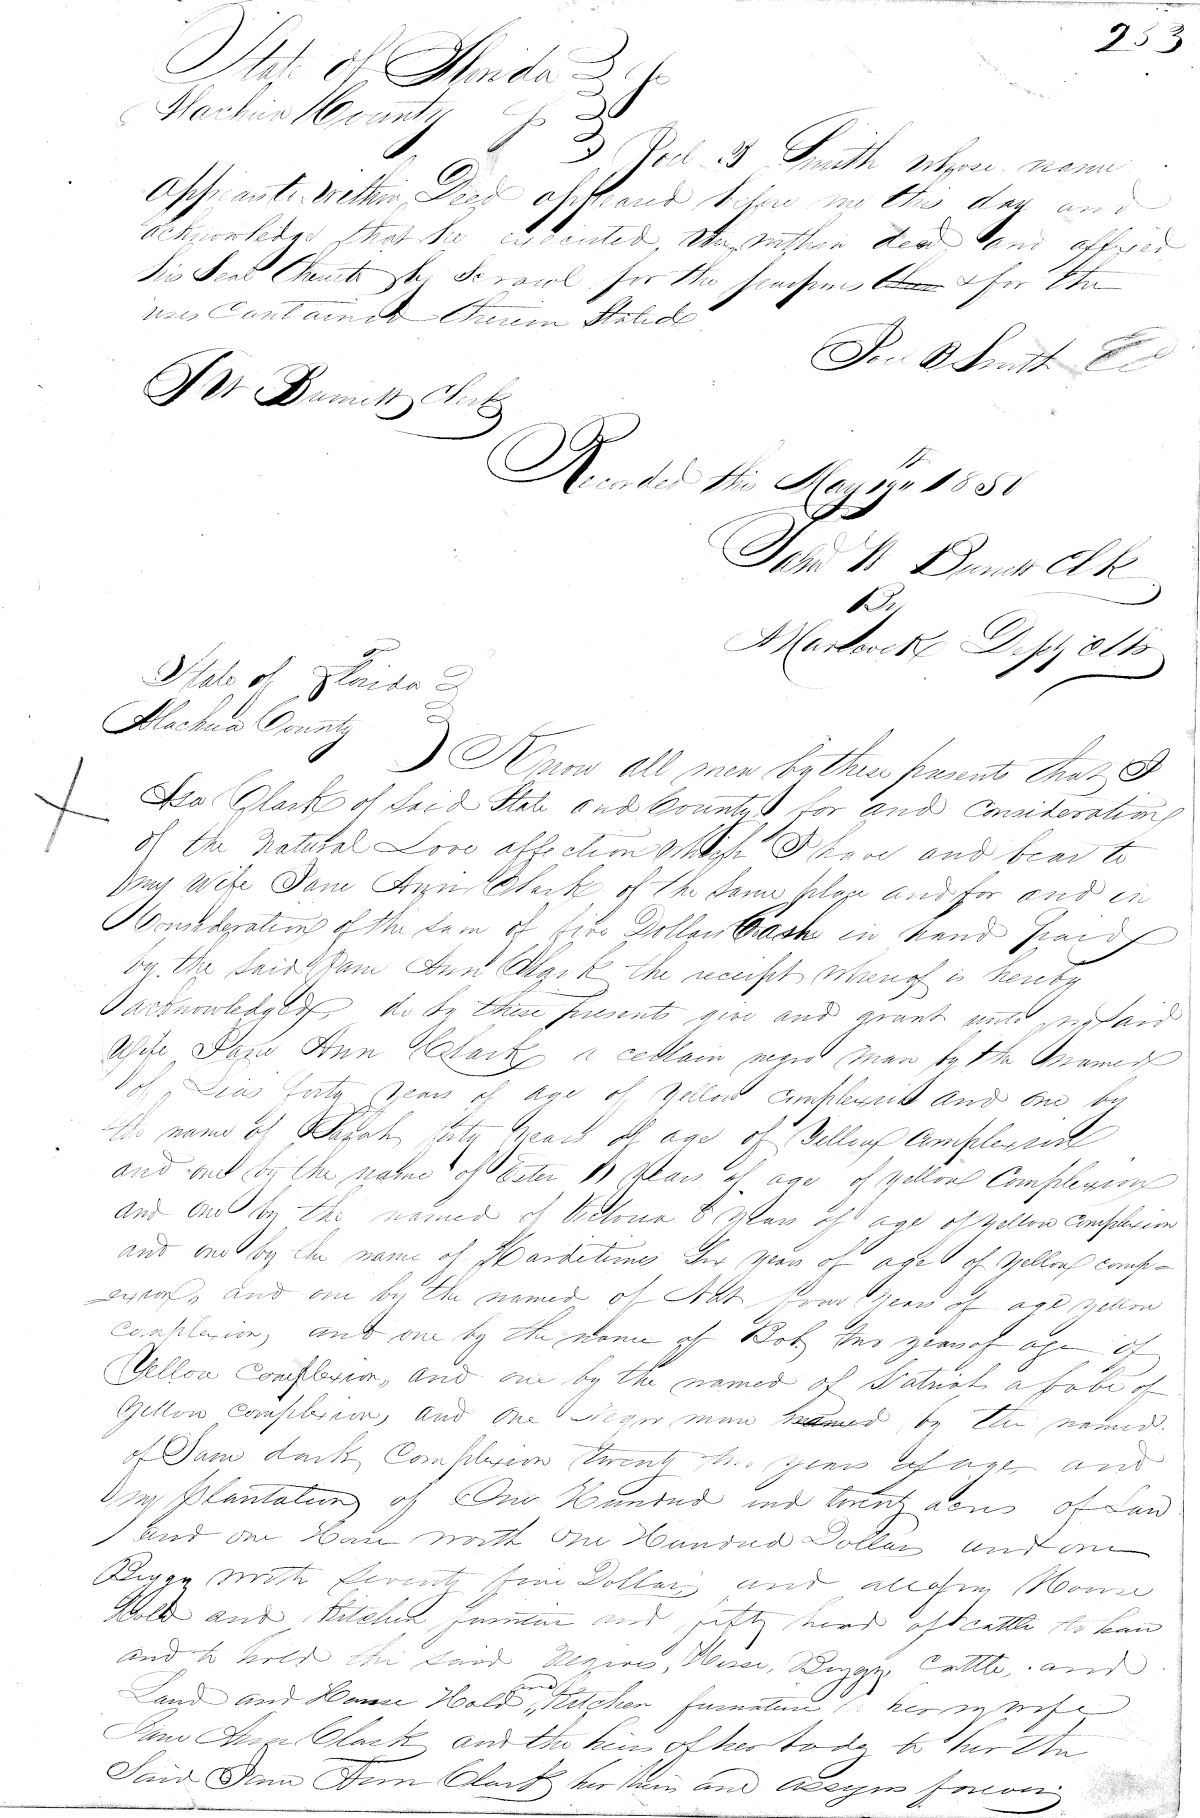 253
State of Florida
Alachua County
Joel B Smith whose name
within Deed appeared before me this day and
acknowledge that he executed the within deed and affixed
his Seal by Scrawl for the purposes & for the
uses Contained therein Stated
Smith
Clerk
Recorded this May 1850
John W Clk
By
Depy Clk
State of Florida
Alachua County
Know all men by these presents that I
Asa Clark of Said State and County for and consideration
of the Natural Love affection which I have and bear to
my wife Jane Ann Clark of the Same place and for and in
Consideration of the Sum of five Dollars Cash in hand paid
by the Said Jane Ann Clark the receipt whereof is hereby
acknowledged do by these presents give and grant unto my Said
Wife Jane Ann Clark a certain negro man by the named
of forty years of age of yellow complexion and one by
the name of Sarah forty years of age of Yellow Complexion
and one by the name of Ester 11 years of age of yellow Complexion
and one by the named of Victoria 8 years of age of yellow complexion
and one by the name of Harditimes Six years of age of yellow comp-
exion, and one by the named of Nat four years of age yellow
complexion, and one by the name of Bob two years of age of
Yellow complexion, and one by the named of a babe of
Yellow complexion, and one Negro man named by the named
of Sam dark Complexion twenty two years of age and
my plantation of One Hundred and twenty acres of Lan
and one Horse worth One Hundred Dollars and one
Buggy worth Seventy five Dollars and all of my House
Hold and Kitchen furniture and fifty head of cattle to have
and to hold the Said Negroes, Horse, Buggy, Cattle, and
Land and House Hold and Kitchen furnature to her my wife
Jane Ann Clark and the heirs of her body to her the
Said Jane Ann Clark her heirs and assigns forever